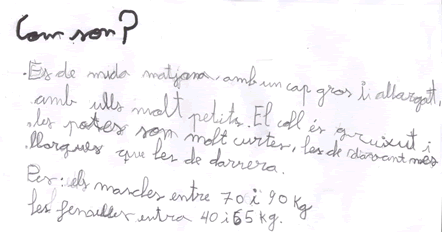 Com son?
.Es de mida matjana, amb un cap gros i allargat,
amb ulls molt petits. El coll és gruixut i
les potes son molt curtes, les de davant més
llargues que les de darrera.
Pes: els mascles entre 70 i 90 Kg
les femelles entra 40 i 65 Kg.